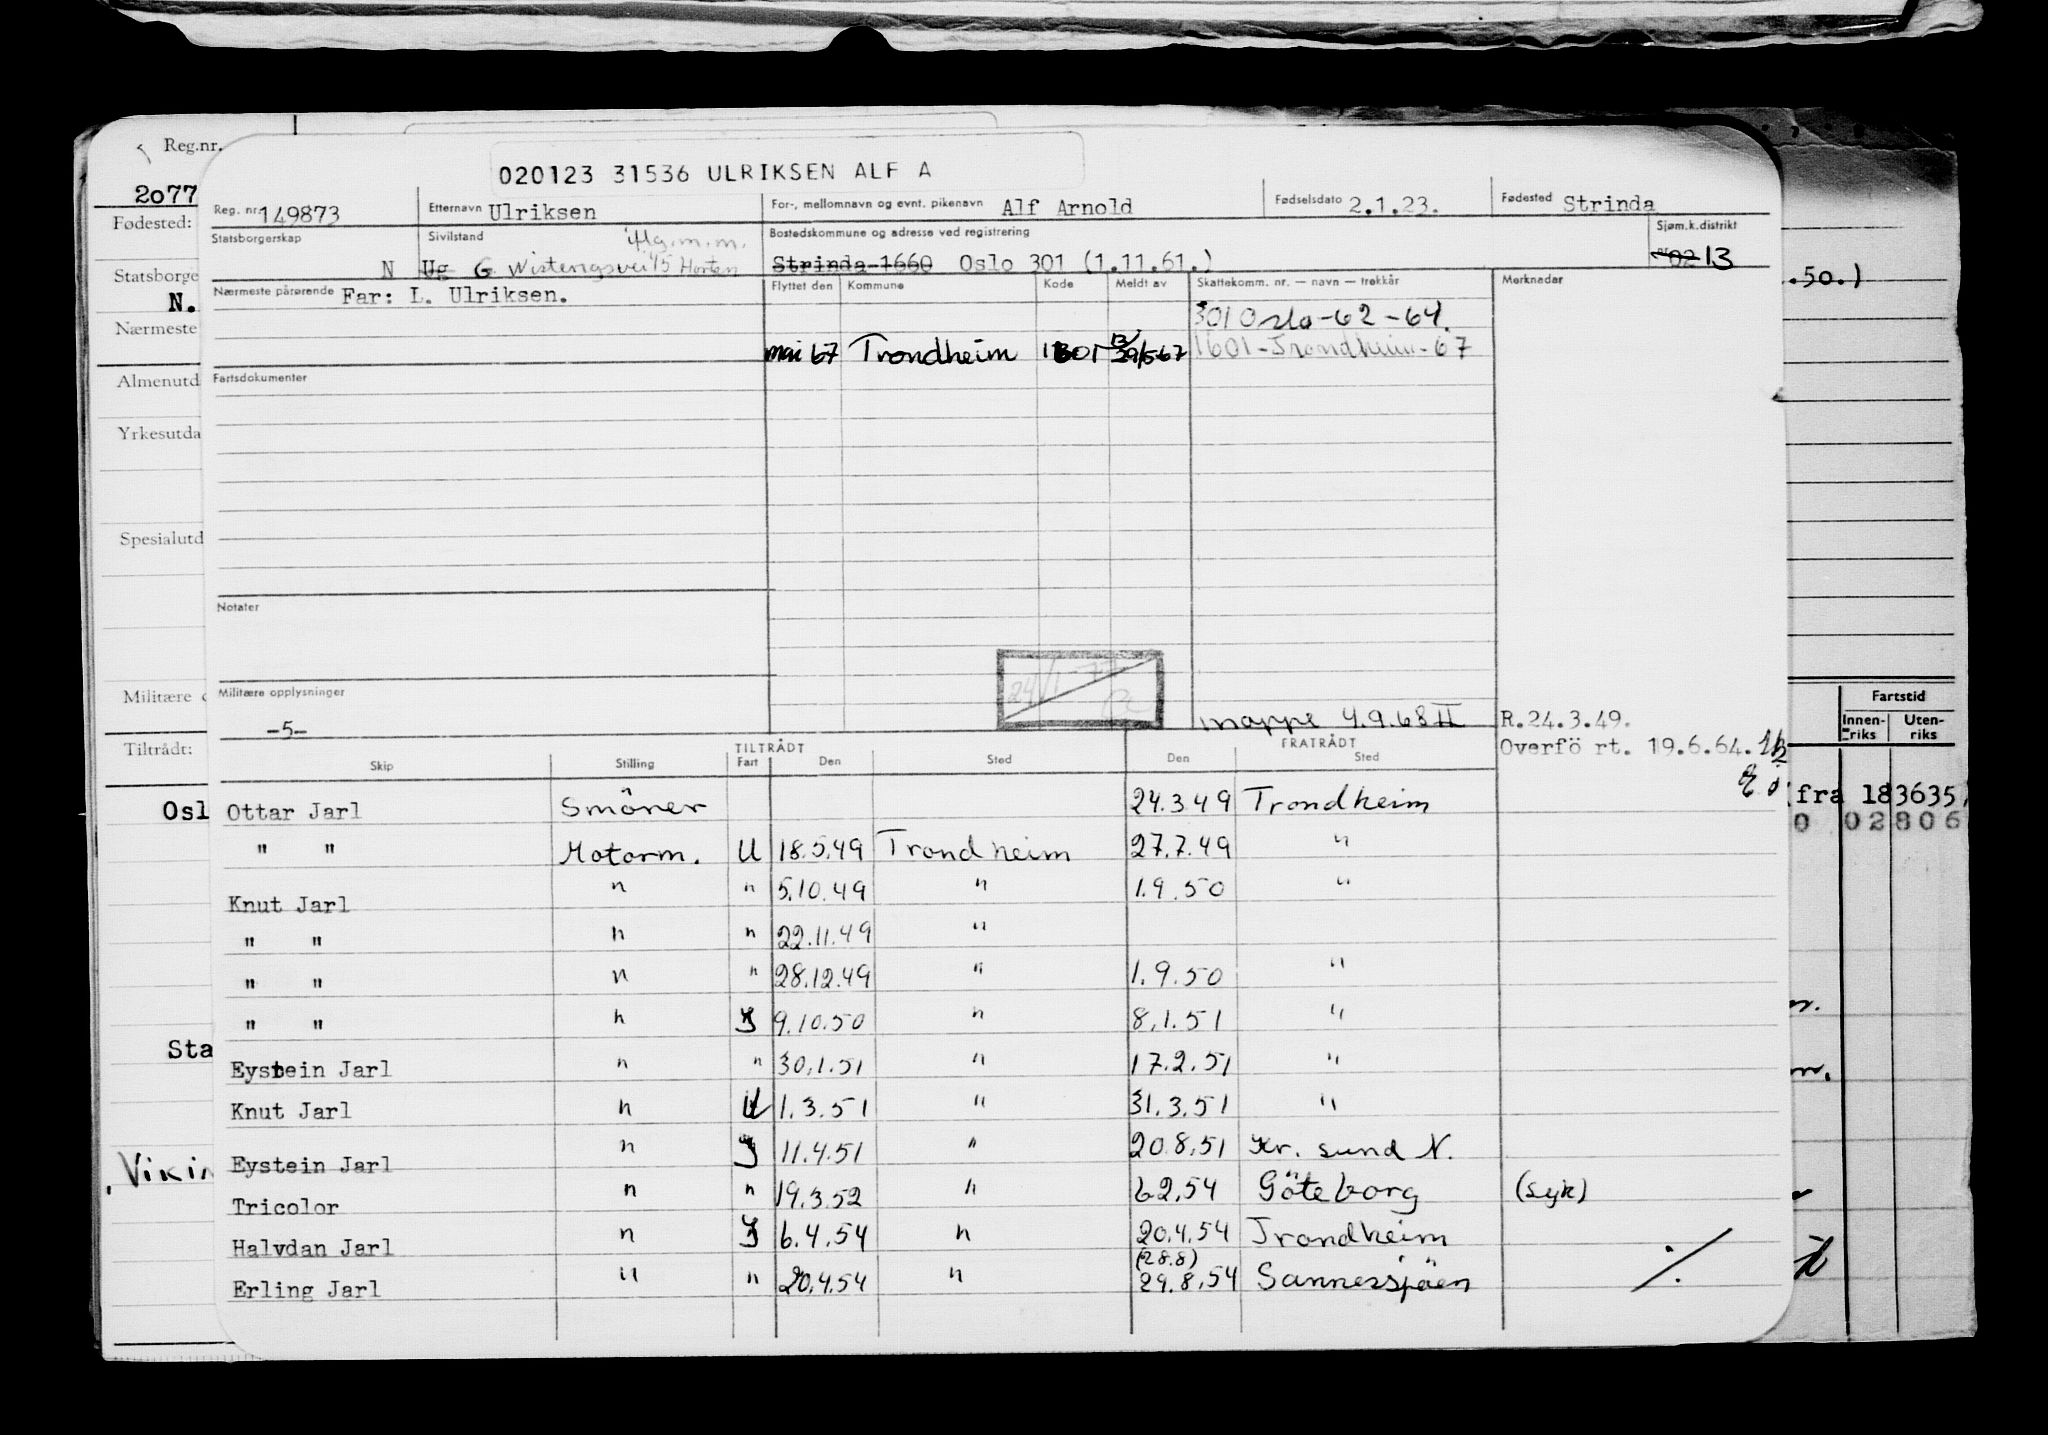 Reg.nr.
020123 31536 ULRIKSEN ALF A
2077
Reg. nr. 149873 Etternavn Ulriksen For-, mellomnavn og evnt. pikenavn Alf Arnold Fødselsdato 2.1.23. Fødested Strinda
Fødested:
Statsborgerskap Sivilstand Bostedskommune og adresse ved registrering Sjøm.k.distrikt
N Ug G Horten Strinda 1660 Oslo 301 (1.11.61.) 02 13
Statsborge
N.
.50.)
Nærmeste pårørende Far: L. Ulriksen. Flyttet den Kommune Kode Meldt av Skattekomm. nr. — navn — trekkår Merknader
301 Oslo-62-64.
Nærmeste
mai 67 Trondheim 1601 29/5-67 1601-Trondheim-67
Almenutd
Fartsdokumenter
Yrkesutda
Spesialutd
Notater
24/1-77
Militære
Militære opplysninger
-5-
mappe 4.9.68 II R.24.3.49.
Overfö rt. 19.6.64.
Fartstid
Innen-riks Uten-riks
Tiltrådt:
TILTRÅDT FRATRÅDT
Skip Stilling Fart Den Sted Den Sted
Osl
(fra 183635,
0 02806
Ottar Jarl Smörer 24.3.49 Trondheim
" " Motorm. U 18.5.49 Trondheim 27.7.49 "
Knut Jarl " " 5.10.49 " 1.9.50 "
" " " " 22.11.49 "
" " " " 28.12.49 " 1.9.50 "
" " " I 9.10.50 " 8.1.51 "
Sta
Eystein Jarl " " 30.1.51 " 17.2.51 "
Knut Jarl " U 1.3.51 " 31.3.51 "
Eystein Jarl " I 11.4.51 " 20.8.51 Kr. sund N.
Vikin
Tricolor " " 19.3.52 " 6.2.54 Göteborg (syk)
Halvdan Jarl " I 6.4.54 " 20.4.54 Trondheim
(28.8)
Erling Jarl " " 20.4.54 " 29.8.54 Sannessjöen ./.